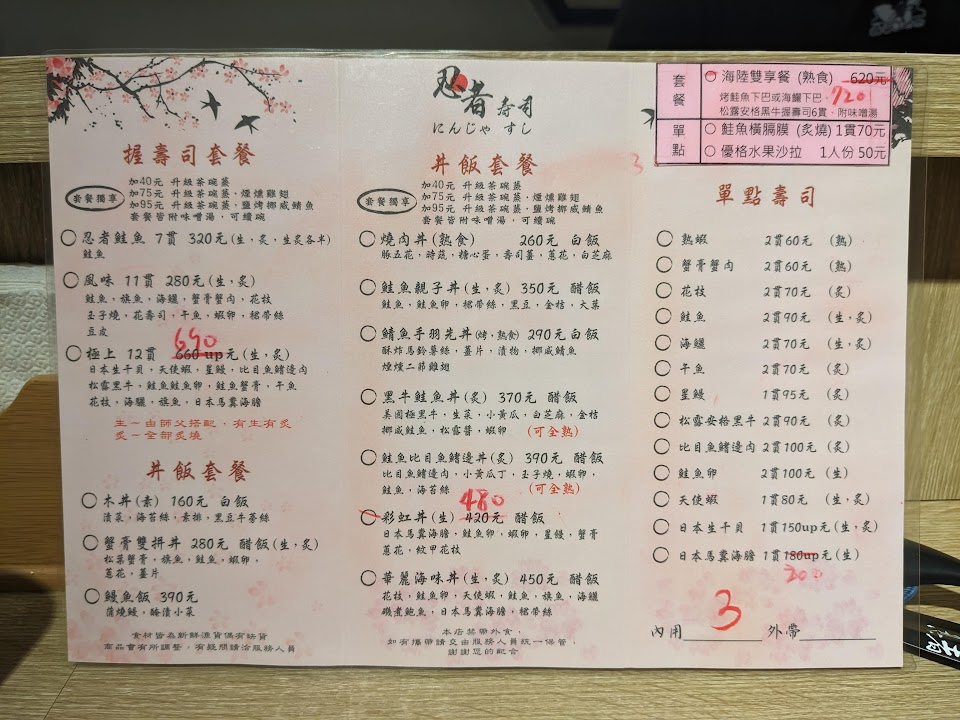 忍者 寿司
にんじゃ すし
握壽司套餐
套餐獨享
加40元 升級茶碗蒸
加75元 升級茶碗蒸,煙燻雞翅
加95元 升級茶碗蒸,鹽烤挪威鯖魚
套餐皆附味噌湯,可續碗
忍者鮭魚 7貫 320元(生,炙,生炙各半)
鮭魚
風味 11貫 280元(生,炙)
鮭魚,旗魚,海鱺,蟹膏蟹肉,花枝
玉子燒,花壽司,干魚,蝦卵,裙帶絲
豆皮
690
極上 12貫 660 up元(生,炙)
日本生干貝,天使蝦,星鰻,比目魚鰭邊肉
松露黑牛,鮭魚鮭魚卵,鮭魚蟹膏,干魚
花枝,海鱺,旗魚,日本馬糞海膽
生-由師父搭配,有生有炙
炙-全部炙燒
丼飯套餐
木丼(素) 160元 白飯
漬菜,海苔絲,素排,黑豆牛蒡絲
蟹膏雙拼丼 280元 醋飯(生,炙)
松葉蟹膏,旗魚,鮭魚,蝦卵,
蔥花,薑片
鰻魚飯 390元
蒲燒鰻,醃漬小菜
食材皆為新鮮漂貨偶有缺貨
商品會有所調整,有疑問請洽服務人員
丼飯套餐
3
套餐獨享
加40元 升級茶碗蒸
加75元 升級茶碗蒸,煙燻雞翅
加95元 升級茶碗蒸,鹽烤挪威鯖魚
套餐皆附味噌湯,可續碗
燒肉丼(熟食) 260元 白飯
豚五花,時蔬,糖心蛋,壽司薑,蔥花,白芝麻
鮭魚親子丼(生,炙) 350元 醋飯
鮭魚,鮭魚卵,裙帶絲,黑豆,金桔,大葉
鯖魚手羽先丼(烤,熟食) 290元白飯
酥炸馬鈴薯絲,薑片,漬物,挪威鯖魚
煙燻二節雞翅
黑牛鮭魚丼(炙) 370元 醋飯
美國極黑牛,生菜,小黃瓜,白芝麻,金桔
挪威鮭魚,松露醬,蝦卵 (可全熟)
鮭魚比目魚鰭邊丼(炙) 390元 醋飯
比目魚鰭邊肉,小黃瓜丁,玉子燒,蝦卵,
鮭魚,海苔絲 (可全熟)
480
彩虹丼(生) 420元 醋飯
日本馬糞海膽,鮭魚卵,蝦卵,星鰻,蟹膏
蔥花,紋甲花枝
華麗海味丼(生,炙) 450元 醋飯
花枝,鮭魚卵,天使蝦,鮭魚,旗魚,海鱺
磯煮鮑魚,日本馬糞海膽,裙帶絲
本店禁帶外食,
如有攜帶請交由服務人員統一保管,
謝謝您的配合
套餐
海陸雙享餐 (熟食) 620元
烤鮭魚下巴或海鱺下巴, 720
松露安格黑牛握壽司6貫,附味噌湯
單點
鮭魚橫膈膜 (炙燒) 1貫70元
優格水果沙拉 1人份 50元
單點壽司
熟蝦 2貫60元 (熟)
蟹膏蟹肉 2貫60元 (熟)
花枝 2貫70元 (炙)
鮭魚 2貫90元 (生,炙)
海鱺 2貫70元 (生,炙)
干魚 2貫70元 (炙)
星鰻 1貫95元 (炙)
松露安格黑牛 2貫90元 (炙)
比目魚鰭邊肉 2貫100元 (炙)
鮭魚卵 2貫100元 (生)
天使蝦 1貫80元 (生,炙)
日本生干貝 1貫150up元(生,炙)
日本馬糞海膽 1貫180up元(生)
200
內用 3 外帶